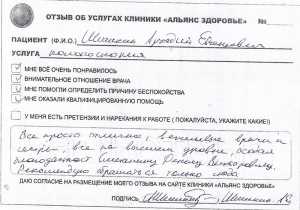 ОТЗЫВ ОБ УСЛУГАХ КЛИНИКИ «АЛЬЯНС ЗДОРОВЬЕ» №
ПАЦИЕНТ (Ф.И.О.) Шишкин
УСЛУГА колоноскопия
МНЕ ВСЁ ОЧЕНЬ ПОНРАВИЛОСЬ
ВНИМАТЕЛЬНОЕ ОТНОШЕНИЕ ВРАЧА
МНЕ ПОМОГЛИ ОПРЕДЕЛИТЬ ПРИЧИНУ БЕСПОКОЙСТВА
МНЕ ОКАЗАЛИ КВАЛИФИЦИРОВАННУЮ ПОМОЩЬ
У МЕНЯ ЕСТЬ ПРЕТЕНЗИИ И НАРЕКАНИЯ К РАБОТЕ ( ПОЖАЛУЙСТА, УКАЖИТЕ КАКИЕ!)
Все просто отлично, вежливые врачи и
сестры, все на высшем уровне, особая
благодарность
Рекомендую обращаться только сюда
ДАЮ СОГЛАСИЕ НА РАЗМЕЩЕНИЕ МОЕГО ОТЗЫВА НА САЙТЕ КЛИНИКИ «АЛЬЯНС ЗДОРОВЬЕ»
ПОДПИСЬ